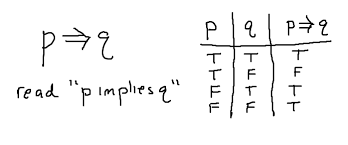 p ⇒ q
read "p implies q"
p q p⇒q
T T T
T F F
F T T
F F T